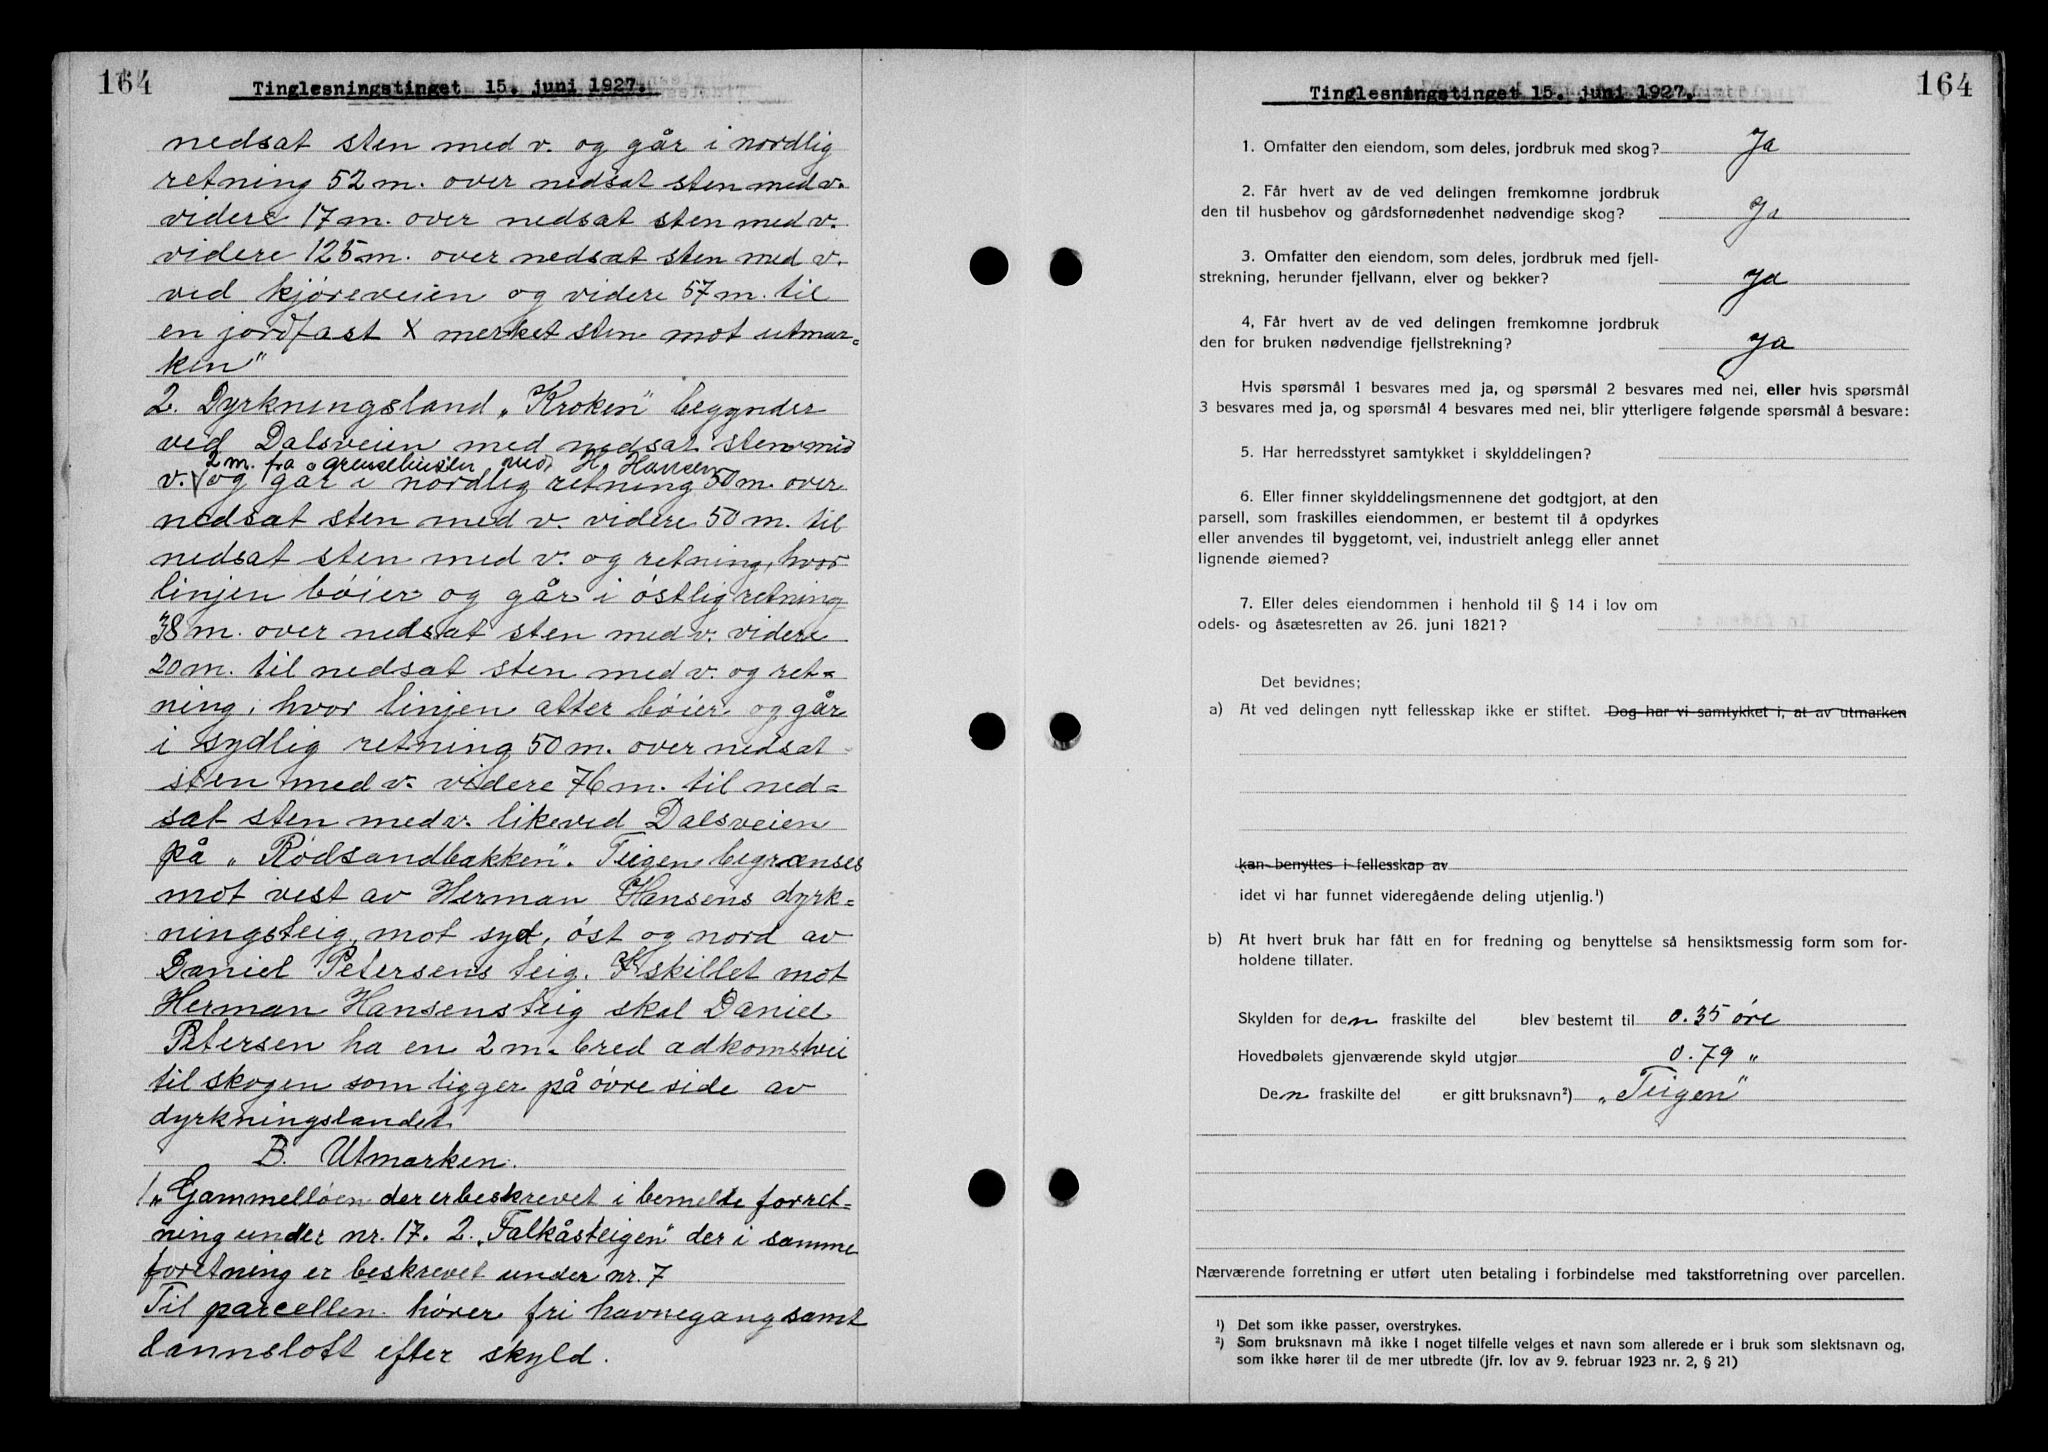 164
Tinglesningstinget 15. juni 1927.
nedsat sten med v. og går i nordlig
retning 52 m. over nedsat sten med v.
videre 17 m. over nedsat sten med v.
videre 125 m. over nedsat sten med v.
ved kjøreveien og videre 57 m. til
en jordfast x merket sten mot utmar=
ken"
2. Dyrkningsland „Kroken" begynder
ved Dalsveien med nedsat sten med
2 m. fra grenselinjen ved H. Hansen
v. og går i nordlig retning 50 m. over
nedsat sten med v. videre 50 m. til
nedsat sten med v. og retning, hvor
linjen bøier og går i østlig retning
38 m. over nedsat sten med v. videre
20 m. til nedsat sten med v. og ret=
ning, hvor linjen atter bøier og går
i sydlig retning 50 m. over nedsat
sten med v. videre 76 m. til ned=
sat sten med v. likeved Dalsveien
på „Rødsandbakken". Teigen begrænses
mot vest av Herman Hansens dyrk=
ningsteig, mot syd, øst og nord av
Daniel Petersens teig. I skillet mot
Herman Hansens teig skal Daniel
Petersen ha en 2 m. bred adkomstvei
til skogen som ligger på øvre side av
dyrkningslandet
B. Utmarken.
1 „Gammelløen der er beskrevet i bemelte forret=
ning under nr. 17. 2. „Falkåsteigen" der i samme
foretning er beskrevet under nr. 7
Til parcellen hører fri havnegang samt
lannsloft efter skyld.
164
Tinglesningstinget 15. juni 1927.
1. Omfatter den eiendom, som deles, jordbruk med skog? Ja
2. Får hvert av de ved delingen fremkomne jordbruk
den til husbehov og gårdsfornødenhet nødvendige skog? Ja
3. Omfatter den eiendom, som deles, jordbruk med fjell-
strekning, herunder fjellvann, elver og bekker? Ja
4, Får hvert av de ved delingen fremkomne jordbruk
den for bruken nødvendige fjellstrekning? Ja
Hvis spørsmål 1 besvares med ja, og spørsmål 2 besvares med nei, eller hvis spørsmål
3 besvares med ja, og spørsmål 4 besvares med nei, blir ytterligere følgende spørsmål å besvare:
5. Har herredsstyret samtykket i skylddelingen?
6. Eller finner skylddelingsmennene det godtgjort, at den
parsell, som fraskilles eiendommen, er bestemt til å opdyrkes
eller anvendes til byggetomt, vei, industrielt anlegg eller annet
lignende øiemed?
7. Eller deles eiendommen i henhold til § 14 i lov om
odels- og åsætesretten av 26. juni 1821?
Det bevidnes;
a) At ved delingen nytt fellesskap ikke er stiftet. Dog har vi samtykket i, at av utmarken
kan benyttes i fellesskap av
idet vi har funnet videregående deling utjenlig.¹)
b) At hvert bruk har fått en for fredning og benyttelse så hensiktsmessig form som for-
holdene tillater.
Skylden for den fraskilte del blev bestemt til 0.35 øre
Hovedbølets gjenværende skyld utgjør 0.79 „
Den fraskilte del er gitt bruksnavn²) „Teigen"
Nærværende forretning er utført uten betaling i forbindelse med takstforretning over parcellen.
¹) Det som ikke passer, overstrykes.
²) Som bruksnavn må ikke i noget tilfelle velges et navn som allerede er i bruk som slektsnavn og,
som ikke hører til de mer utbredte (jfr. lov av 9. februar 1923 nr. 2, § 21)